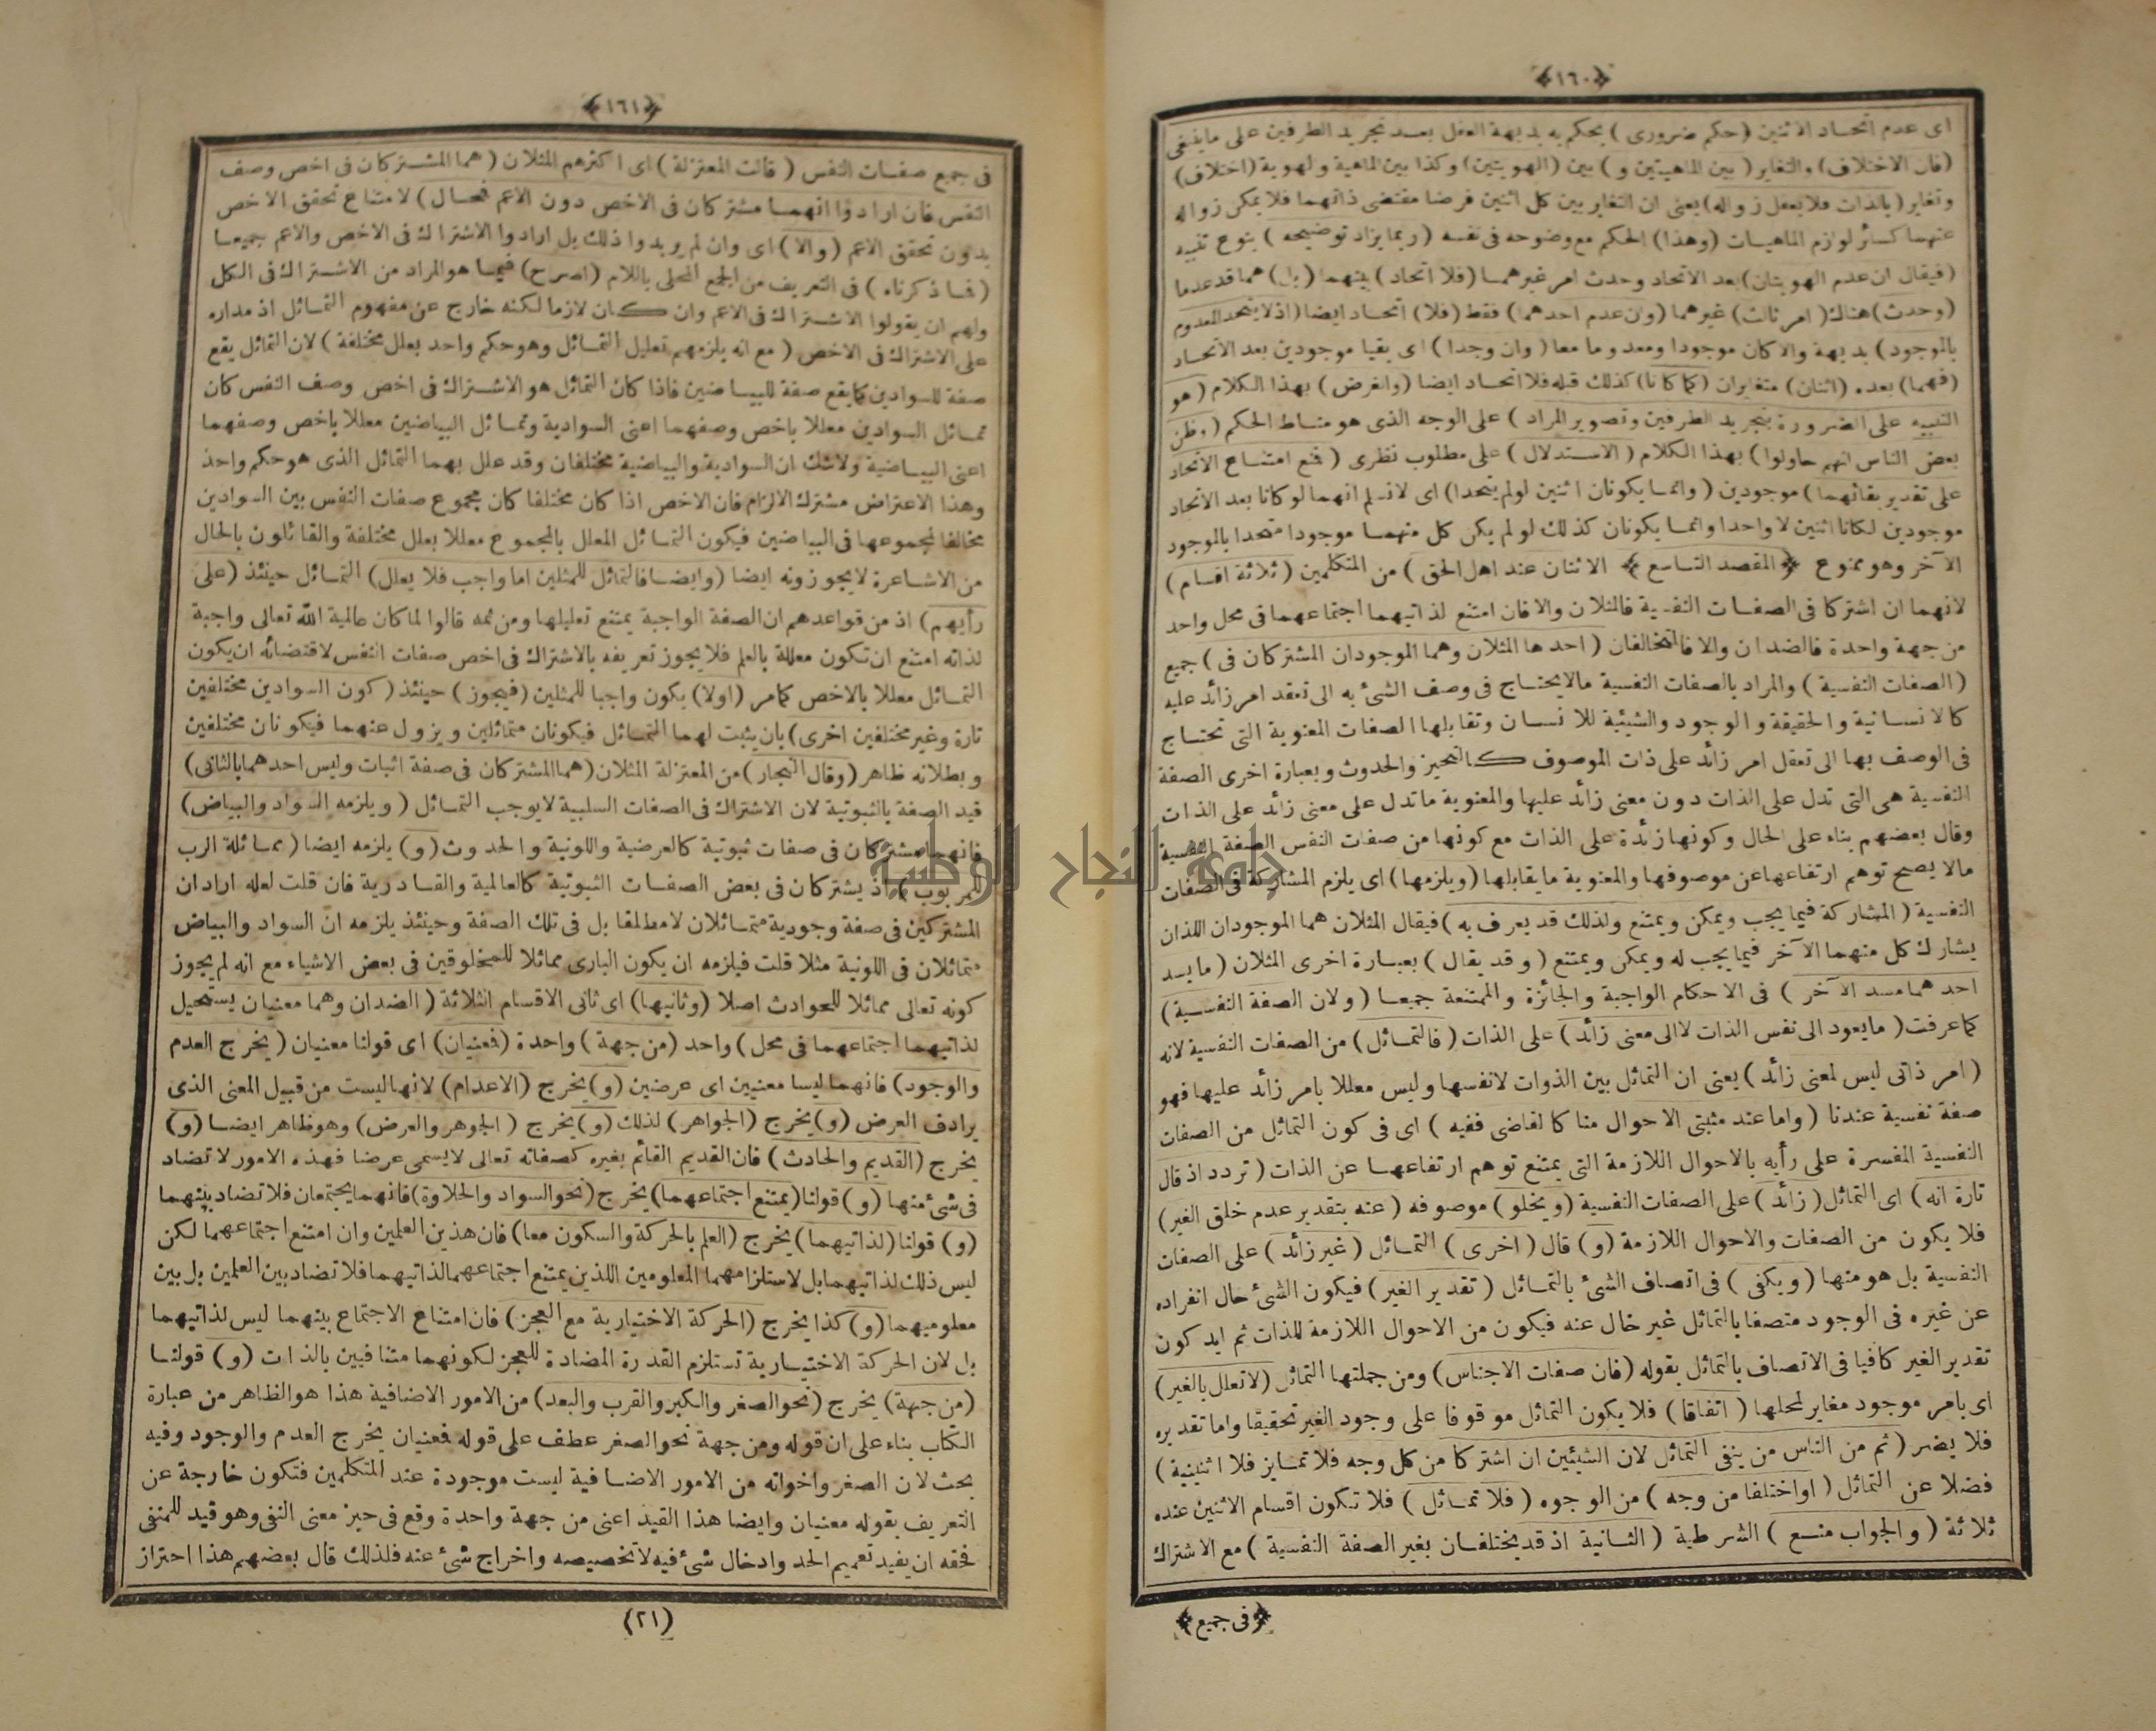 ﴿١٦٠﴾
اى عدم اتحاد الاثنين (حكم ضرورى) يحكم به بديهة العقل بعد تجريد الطرفين على ما ينبغى
(فان الاختلاف) والتغاير (بين الماهيتين و) بين (الهويتين) وكذا بين الماهية والهوية (اختلاف)
وتغاير (بالذات فلا يعقل زواله) يعنى ان التغاير بين كل اثنين فرضا مقتضى ذاتهما فلا يمكن زواله
عنهما كسائر لوازم الماهيات (وهذا) الحكم مع وضوحه فى نفسه (ربما يزاد توضيحه) بنوع تنبيه
(فيقال ان عدم الهويتان) بعد الاتحاد وحدث امر غيرهما (فلا اتحاد) بينهما (بل) هما قد عدما
(وحدث) هناك (امر ثالث) غيرهما (وان عدم احدهما) فقط (فلا) اتحاد ايضا (اذ لا يتحد المعدوم
بالموجود) بديهة والا كان موجودا ومعدوما معا (وان وجدا) اى بقيا موجودين بعد الاتحاد
(فهما) بعده (اثنان) متغايران (كما كانا) كذلك قبله فلا اتحاد ايضا (والغرض) بهذا الكلام (هو
التنبيه على الضرورة بتجريد الطرفين وتصوير المراد) على الوجه الذى هو مناط الحكم (وظن
بعض الناس انهم حاولوا) بهذا الكلام (الاستدلال) على مطلوب نظرى (فمنع امتناع الاتحاد
على تقدير بقائهما) موجودين (وانما يكونان اثنين لو لم يتحدا) اى لا نسلم انهما لو كانا بعد الاتحاد
موجودين لكانا اثنين لا واحدا وانما يكونان كذلك لو لم يكن كل منهما موجودا متحدا بالموجود
الآخر وهو ممنوع ﴿المقصد التاسع﴾ الاثنان عند اهل الحق) من المتكلمين (ثلاثة اقسام)
لانهما ان اشتركا فى الصفات النفسية فالمثلان والا فان امتنع لذاتيهما اجتماعهما فى محل واحد
من جهة واحدة فالضدان والا فالمتخالفان (احدها المثلان وهما الموجودان المشتركان فى) جميع
(الصفات النفسية) والمراد بالصفات النفسية مالا يحتاج فى وصف الشئ به الى تعقد امر زائد عليه
كالانسانية والحقيقة والوجود والشيئية للانسان وتقابلها الصفات المعنوية التى تحتاج
فى الوصف بها الى تعقل امر زائد على ذات الموصوف كالتحيز والحدوث وبعبارة اخرى الصفة
النفسية هى التى تدل على الذات دون معنى زائد عليها والمعنوية ماتدل على معنى زائد على الذات
وقال بعضهم بناء على الحال وكونها زائدة على الذات مع كونها من صفات النفس الصفة النفسية
مالا يصح توهم ارتفاعها عن موصوفها والمعنوية ما يقابلها (ويلزمها) اى يلزم المشاركة فى الصفات
النفسية (المشاركة فيما يجب ويمكن ويمتنع ولذلك قد يعرف به) فيقال المثلان هما الموجودان اللذان
يشارك كل منهما الآخر فيما يجب له ويمكن ويمتنع (وقد يقال) بعبارة اخرى المثلان (ما يسد
احدهما مسد الآخر) فى الاحكام الواجبة والجائزة والممتنعة جميعا (ولان الصفة النفسية)
كما عرفت (ما يعود الى نفس الذات لا الى معنى زائد) على الذات (فالتماثل) من الصفات النفسية لانه
(امر ذاتى ليس لمعنى زائد) يعنى ان التماثل بين الذوات لانفسها وليس معللا بامر زائد عليها فهو
صفة نفسية عندنا (واما عند مثبتى الاحوال منا كالقاضى ففيه) اى فى كون التماثل من الصفات
النفسية المفسرة على رأيه بالاحوال اللازمة التى يمتنع توهم ارتفاعها عن الذات (تردد اذ قال
تارة انه) اى التماثل (زائد) على الصفات النفسية (ويخلو) موصوفه (عنه بتقدير عدم خلق الغير)
فلا يكون من الصفات والاحوال اللازمة (و) قال (اخرى) التماثل (غير زائد) على الصفات
النفسية بل هو منها (ويكفى) فى اتصاف الشئ بالتماثل (تقدير الغير) فيكون الشئ حال انفراده
عن غيره فى الوجود متصفا بالتماثل غير خال عنه فيكون من الاحوال اللازمة للذات ثم ايد كون
تقدير الغير كافيا فى الاتصاف بالتماثل بقوله (فان صفات الاجناس) ومن جملتها التماثل (لا تعلل بالغير)
اى بامر موجود مغاير لمحلها (اتفاقا) فلا يكون التماثل موقوفا على وجود الغير تحقيقا واما تقديره
فلا يضر (ثم من الناس من ينفى التماثل لان الشيئين ان اشتركا من كل وجه فلا تمايز فلا اثنينية)
فضلا عن التماثل (او اختلفا من وجه) من الوجوه (فلا تماثل) فلا تكون اقسام الاثنين عنده
ثلاثة (والجواب منع) الشرطية (الثانية اذ قد يختلفان بغير الصفة النفسية) مع الاشتراك
﴿فى جميع﴾
﴿١٦١﴾
فى جميع صفات النفس (قالت المعتزلة) اى اكثرهم المثلان (هما المشتركان فى اخص وصف
النفس فان ارادوا انهما مشتركان فى الاخص دون الاعم فمحال) لامتناع تحقق الاخص
بدون تحقق الاعم (والا) اى وان لم يريدوا ذلك بل ارادوا الاشتراك فى الاخص والاعم جميعا
(فما ذكرناه) فى التعريف من الجمع المحلى باللام (اصرح) فيما هو المراد من الاشتراك فى الكل
ولهم ان يقولوا الاشتراك فى الاعم وان كان لازما لكنه خارج عن مفهوم التماثل اذ مداره
على الاشتراك فى الاخص (مع انه يلزمهم تعليل التماثل وهو حكم واحد بعلل مختلفة) لان التماثل يقع
صفة للسوادين كما يقع صفة للبياضين فاذا كان التماثل هو الاشتراك فى اخص وصف النفس كان
تماثل السوادين معللا باخص وصفهما اعنى السوادية وتماثل البياضين معللا باخص وصفهما
اعنى البياضية ولا شك ان السوادية والبياضية مختلفان وقد علل بهما التماثل الذى هو حكم واحد
وهذا الاعتراض مشترك الالزام فان الاخص اذا كان مختلفا كان مجموع صفات النفس بين السوادين
مخالفا لمجموعها فى البياضين فيكون التماثل المعلل بالمجموع معللا بعلل مختلفة والقائلون بالحال
من الاشاعرة لا يجوزونه ايضا (وايضا فالتماثل للمثلين اما واجب فلا يعلل) التماثل حينئذ (على
رأيهم) اذ من قواعدهم ان الصفة الواجبة يمتنع تعليلها ومن ثمه قالوا لما كان عالمية الله تعالى واجبة
لذاته امتنع ان تكون معللة بالعلم فلا يجوز تعريفه بالاشتراك فى اخص صفات النفس لاقتضائه ان يكون
التماثل معللا بالاخص كما مر (اولا) يكون واجبا للمثلين (فيجوز) حينئذ (كون السوادين مختلفين
تارة وغير مختلفين اخرى) بان يثبت لهما التماثل فيكونان متماثلين ويزول عنهما فيكونان مختلفين
وبطلانه ظاهر (وقال النجار) من المعتزلة المثلان (هما المشتركان فى صفة اثبات وليس احدهما بالثانى)
قيد الصفة بالثبوتية لان الاشتراك فى الصفات السلبية لا يوجب التماثل (ويلزمه السواد والبياض)
فانهما مشتركان فى صفات ثبوتية كالعرضية واللونية والحدوث (و) يلزمه ايضا (مماثلة الرب
للمربوب) اذ يشتركان فى بعض الصفات الثبوتية كالعالمية والقادرية فان قلت لعله اراد ان
المشتركين فى صفة وجودية متماثلان لا مطلقا بل فى تلك الصفة وحينئذ يلزمه ان السواد والبياض
متماثلان فى اللونية مثلا قلت فيلزمه ان يكون البارى مماثلا للمخلوقين فى بعض الاشياء مع انه لم يجوز
كونه تعالى مماثلا للحوادث اصلا (وثانيها) اى ثانى الاقسام الثلاثة (الضدان وهما معنيان يستحيل
لذاتيهما اجتماعهما فى محل) واحد (من جهة) واحدة (فمعنيان) اى قولنا معنيان (يخرج العدم
والوجود) فانهما ليسا معنيين اى عرضين (و) يخرج (الاعدام) لانها ليست من قبيل المعنى الذى
يرادف العرض (و) يخرج (الجواهر) لذلك (و) يخرج (الجوهر والعرض) وهو ظاهر ايضا (و)
يخرج (القديم والحادث) فان القديم القائم بغيره كصفاته تعالى لا يسمى عرضا فهذه الامور لا تضاد
فى شئ منها (و) قولنا (يمتنع اجتماعهما) يخرج (نحو السواد والحلاوة) فانهما يجتمعان فلا تضاد بينهما
(و) قولنا (لذاتيهما) يخرج (العلم بالحركة والسكون معا) فان هذين العلمين وان امتنع اجتماعهما لكن
ليس ذلك لذاتيهما بل لاستلزامهما المعلومين اللذين يمتنع اجتماعهما لذاتيهما فلا تضاد بين العلمين بل بين
معلوميهما (و) كذا يخرج (الحركة الاختيارية مع العجز) فان امتناع الاجتماع بينهما ليس لذاتيهما
بل لان الحركة الاختيارية تستلزم القدرة المضادة للعجز لكونهما متنافيين بالذات (و) قولنا
(من جهة) يخرج (نحو الصغر والكبر والقرب والبعد) من الامور الاضافية هذا هو الظاهر من عبارة
الكتاب بناء على ان قوله ومن جهة نحو الصغر عطف على قوله فمعنيان يخرج العدم والوجود وفيه
بحث لان الصغر واخواته من الامور الاضافية ليست موجودة عند المتكلمين فتكون خارجة عن
التعريف بقوله معنيان وايضا هذا القيد اعنى من جهة واحدة وقع فى حيز معنى النفى وهو قيد للمنفى
فحقه ان يفيد تعميم الحد وادخال شئ فيه لا تخصيصه واخراج شئ عنه فلذلك قال بعضهم هذا احتراز
(٢١)
جامعة النجاح الوطنية